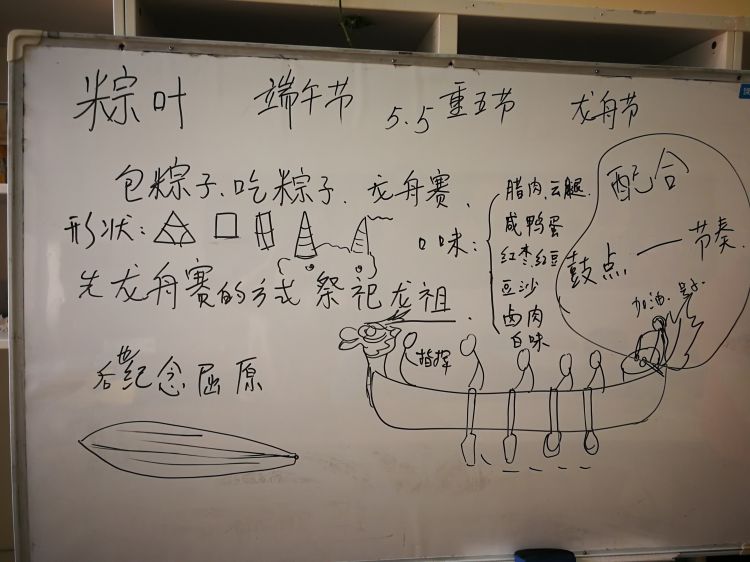 粽叶 端午节 5.5 重五节 龙舟节
包粽子、吃粽子、龙舟赛、
形状:
口味:
腊肉、云腿、
咸鸭蛋
红枣、红豆
豆沙
卤肉
白味
先龙舟赛的方式祭祀龙祖.
后世纪念屈原
配合
鼓点——节奏
加油.号子
指挥